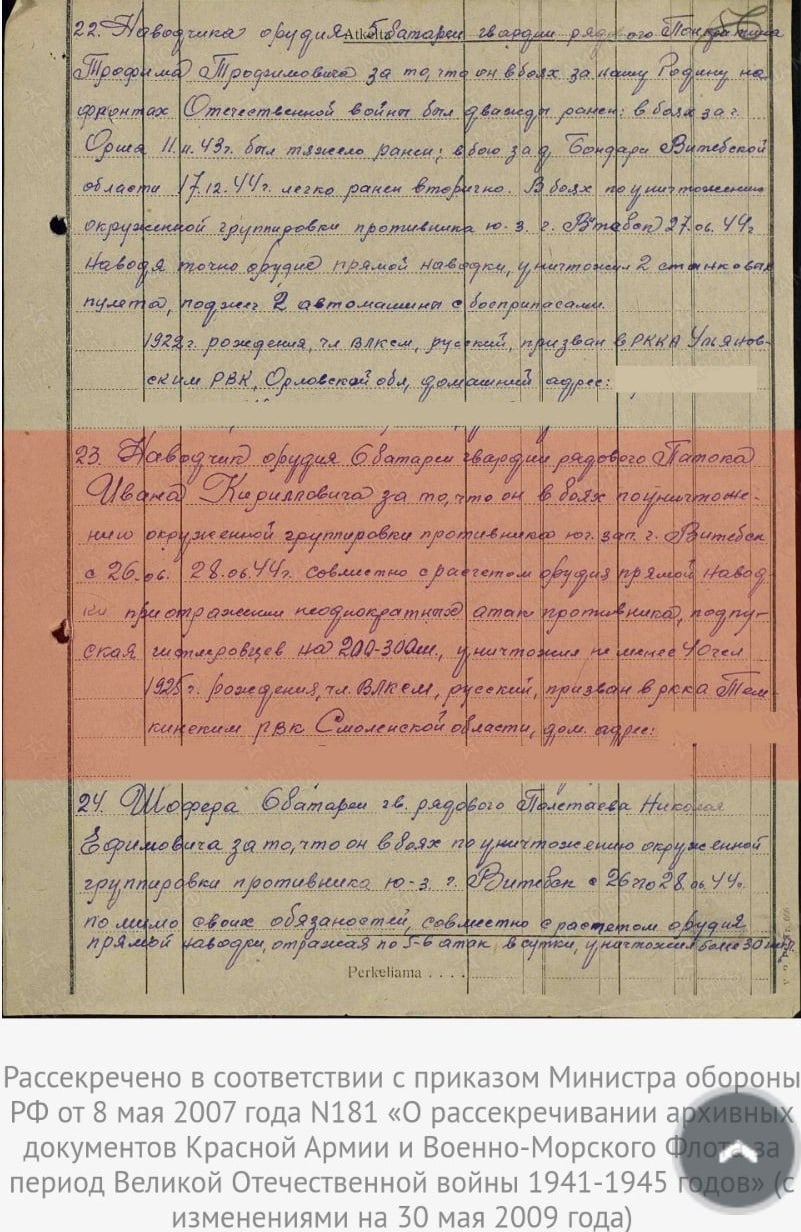 22. Наводчика орудия 5 батареи гвардии рядового Панкратина
Atkelta
Трофима Трофимовича за то, что он в боях за нашу Родину на
фронтах Отечественной войны был дважды ранен: в боях за г.
Орша 11.11.43г. был тяжело ранен; в бою за д. Бондари Витебской
области 17.12.44г. легко ранен вторично. В боях по уничтожению
окруженной группировки противника ю.з. г. Втабск 27.06.44г
наводя точно орудие прямой наводки, уничтожил 2 станковых
пулета, поджег 2 автомашины с босприпасами.
1922г. рождения, чл ВЛКСМ, русский, призван в РККА Ульянов-
ским РВК, Орловской обл, домашний адрес:
23. Наводчик орудия 6 батареи гвардии рядового Патока
Ивана Кирилловича за то, что он в боях по уничтоже-
нию окруженной группировки противника юг. зап. г. Витебск
с 26.06. 28.06.44г. совместно с расчетом орудия прямой навод-
ки при отражении неоднократных атак противника, подпу-
ская гитлеровцев на 200-300м., уничтожил не менее 40 чел
1925г. рождения, чл. ВЛКСМ, русский, призван в РККА Тем-
кинским РВК Смоленской области, дом. адрес:
24. Шофера 6 батареи гв. рядового Полетаева Николая
Ефимовича за то, что он в боях по уничтожению окруженной
группировки противника ю-з. г. Витебск с 26 по 28.06.44г.
помимо своих обязаностей, совместно с расчетом орудия
прямой наводки, отражая по 5-6 атак в сутки, уничтожил более 30
Perkeliama . . . .
Рассекречено в соответствии с приказом Министра обороны
РФ от 8 мая 2007 года N181 «О рассекречивании архивных
документов Красной Армии и Военно-Морского Флота за
период Великой Отечественной войны 1941-1945 годов» (с
изменениями на 30 мая 2009 года)